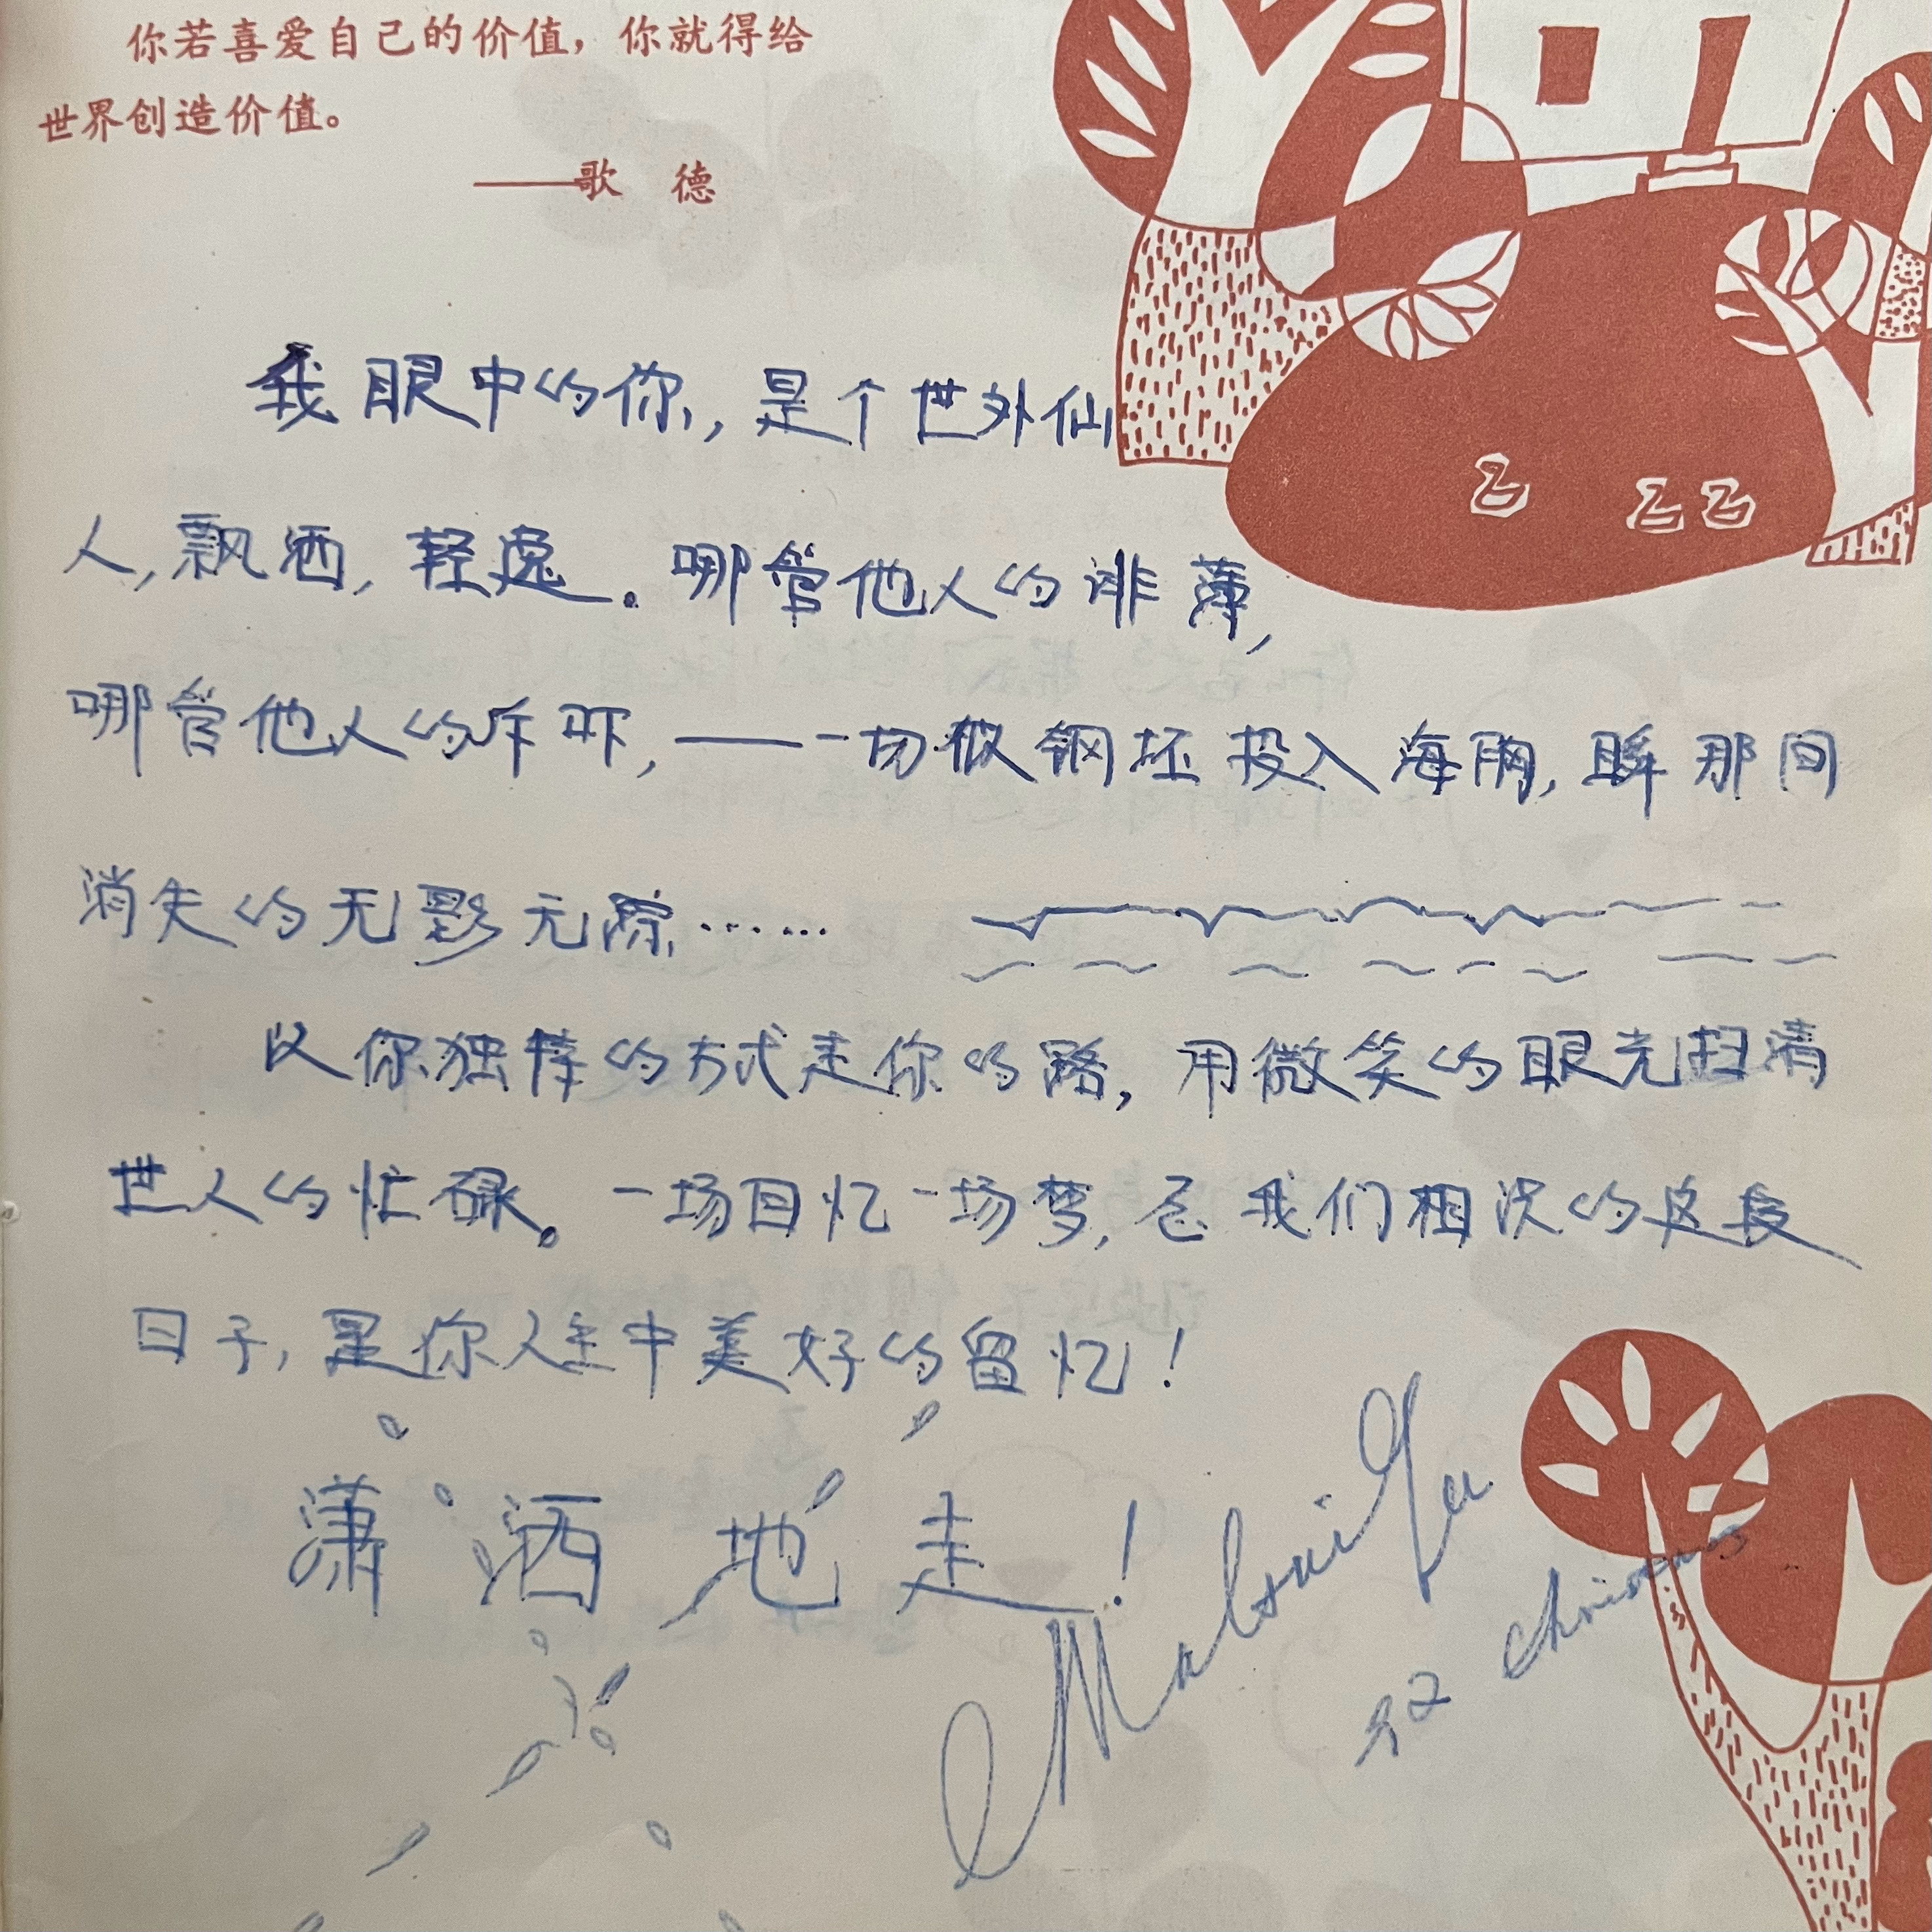 你若喜爱自己的价值，你就得给
世界创造价值。
——歌 德
我眼中的你，是个世外仙
人，飘洒，轻逸。哪管他人的诽薄，
哪管他人的斥吓，——一切似钢坯投入海胸，眸那间
消失的无影无踪……
以你独特的方式走你的路，用微笑的眼光扫清
世人的忙碌。一场回忆一场梦，愿我们相识的这段
日子，是你人生中美好的留忆！
潇洒地走！
92 Christmas